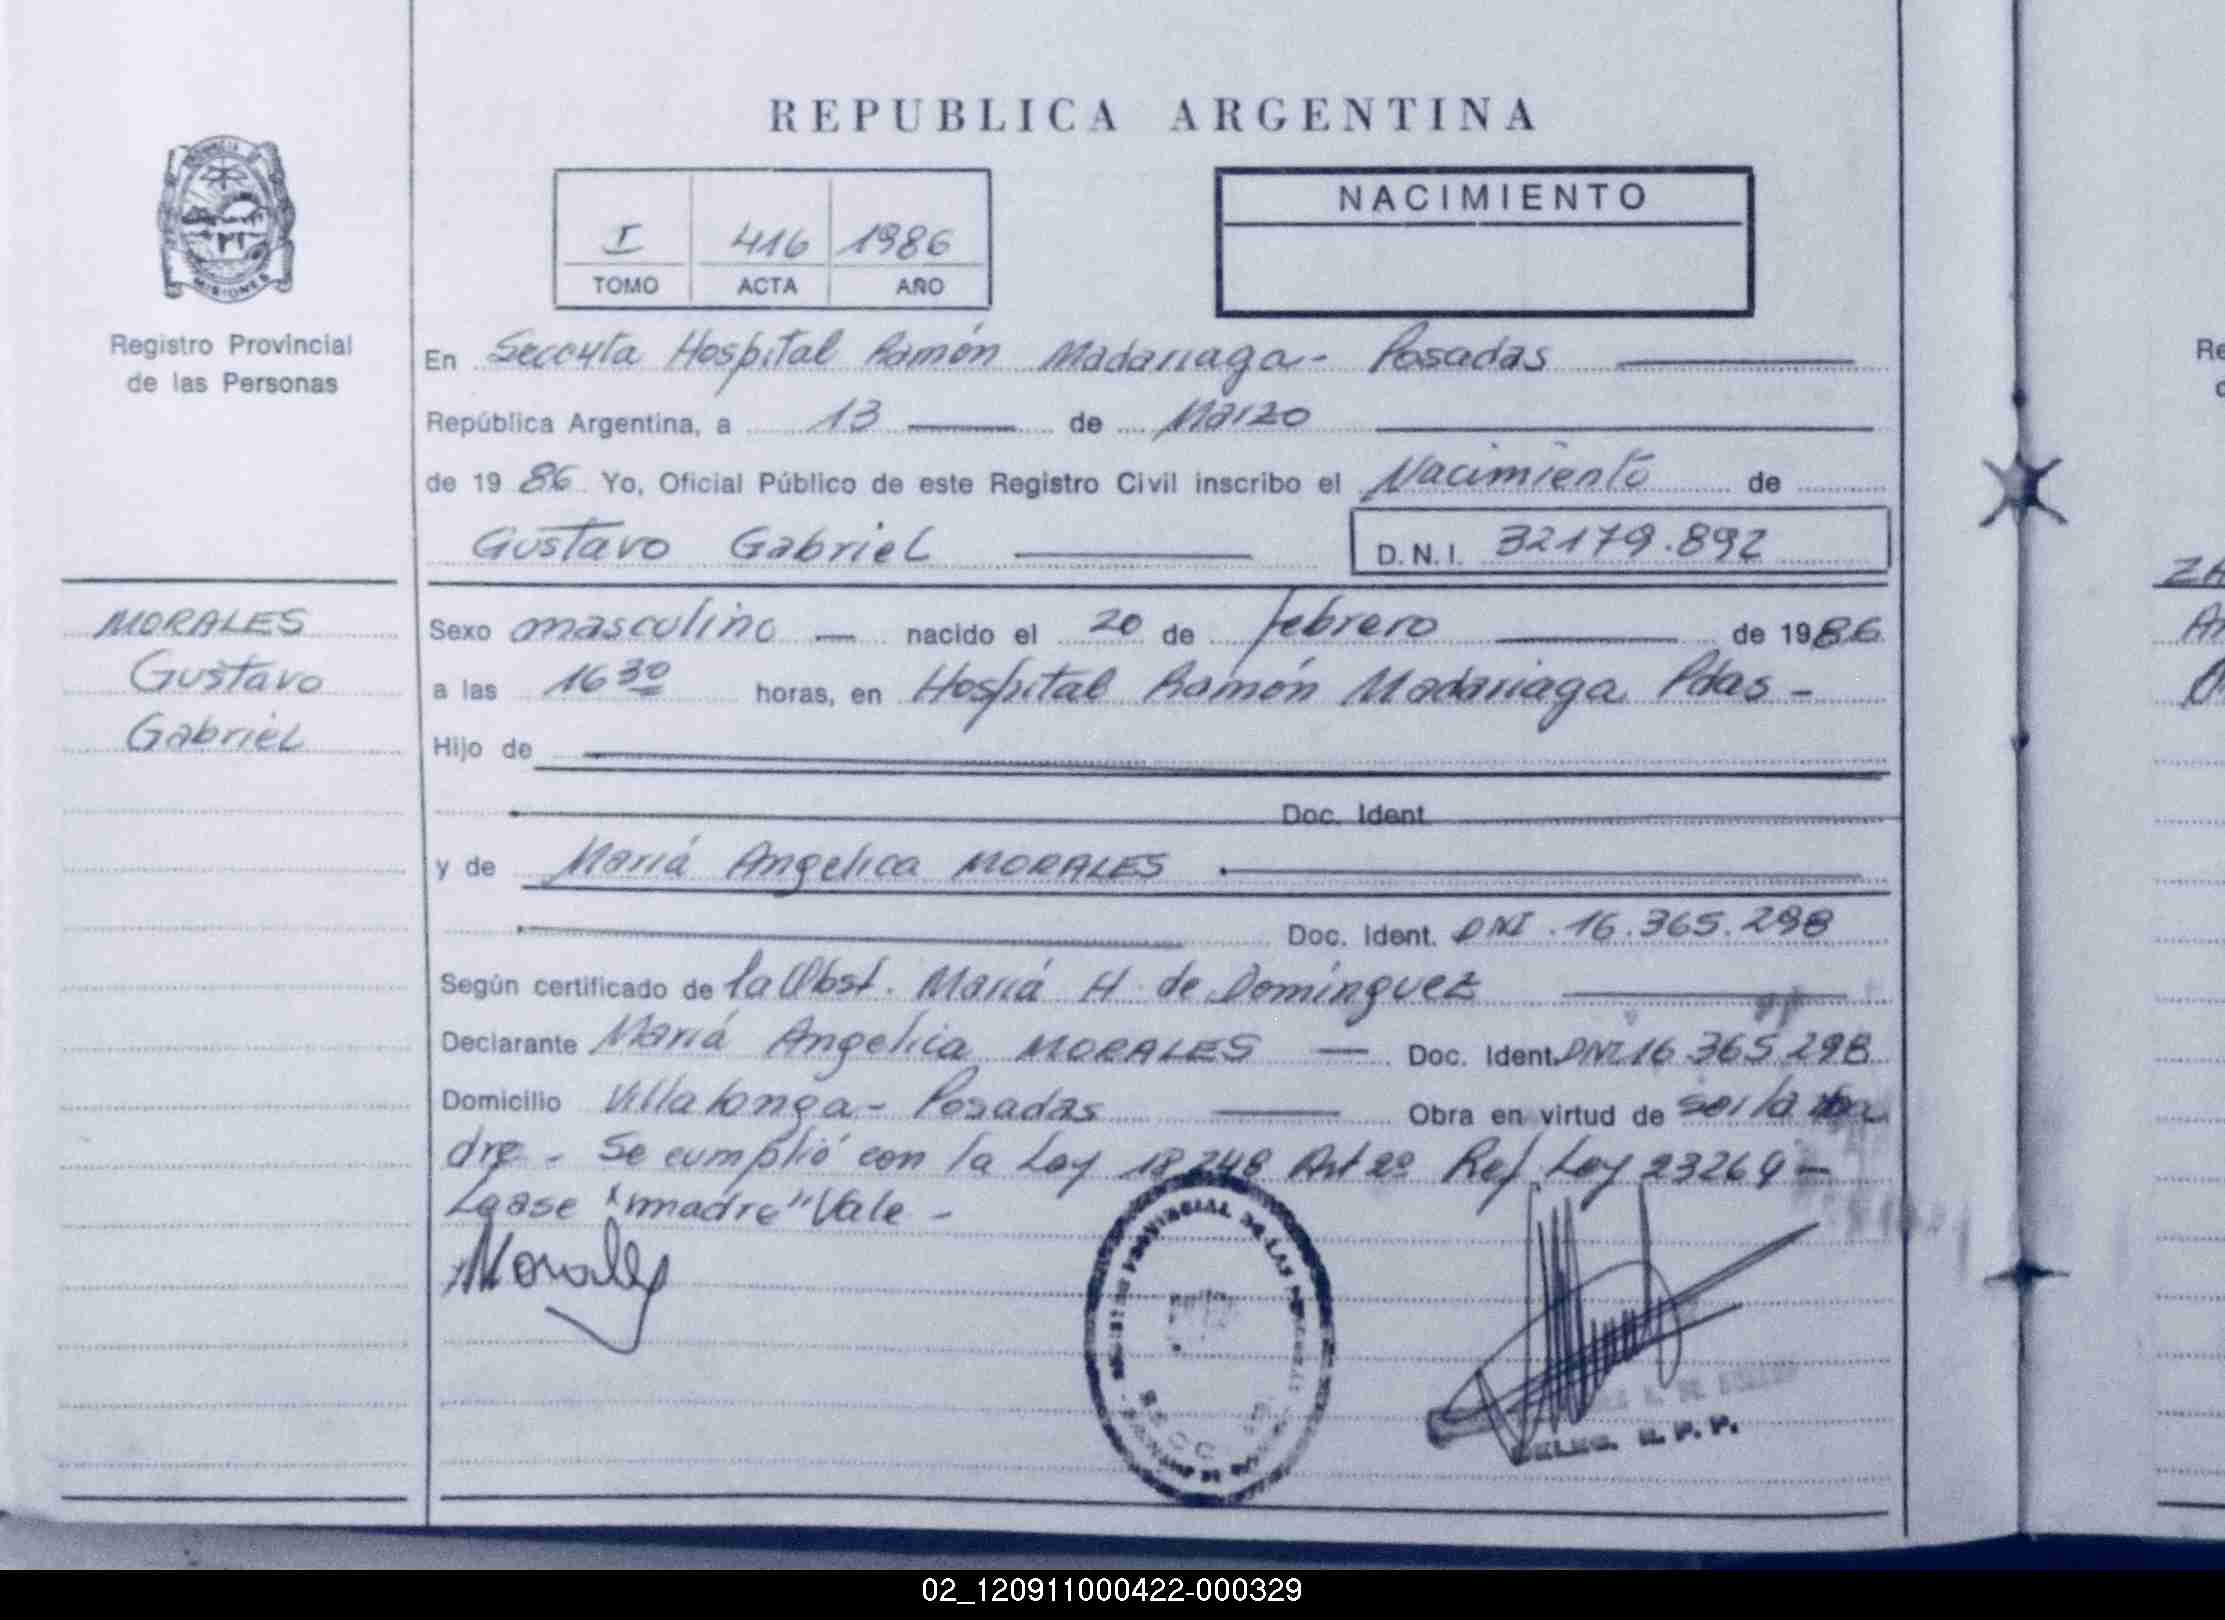 REPUBLICA ARGENTINA
PROVINCIA DE
MISIONES
Registro Provincial
de las Personas
I 416 1986
TOMO ACTA AÑO
NACIMIENTO
En Seccyta Hospital Ramón Madariaga - Posadas
República Argentina, a 13 de Marzo
de 1986 Yo, Oficial Público de este Registro Civil inscribo el Nacimiento de
Gustavo Gabriel D.N.I. 32179.892
MORALES
Gustavo
Gabriel
Sexo masculino nacido el 20 de febrero de 1986
a las 16 30 horas, en Hospital Ramón Madariaga Pdas -
Hijo de
Doc. Ident.
y de María Angelica MORALES
Doc. Ident. DNI. 16.365.298
Según certificado de la Obst. María H. de Domínguez
Declarante María Angelica MORALES — Doc. Ident. DNI 16 365 298
Domicilio Villalonga - Posadas Obra en virtud de ser la
dre - Se cumplió con la Ley 18248 Art 2º Ref. Ley 23264 -
Lease "madre" Vale -
Morales
PROVINCIAL DE LAS
DELEG. R. P. P.
Re
ZA
02_120911000422-000329